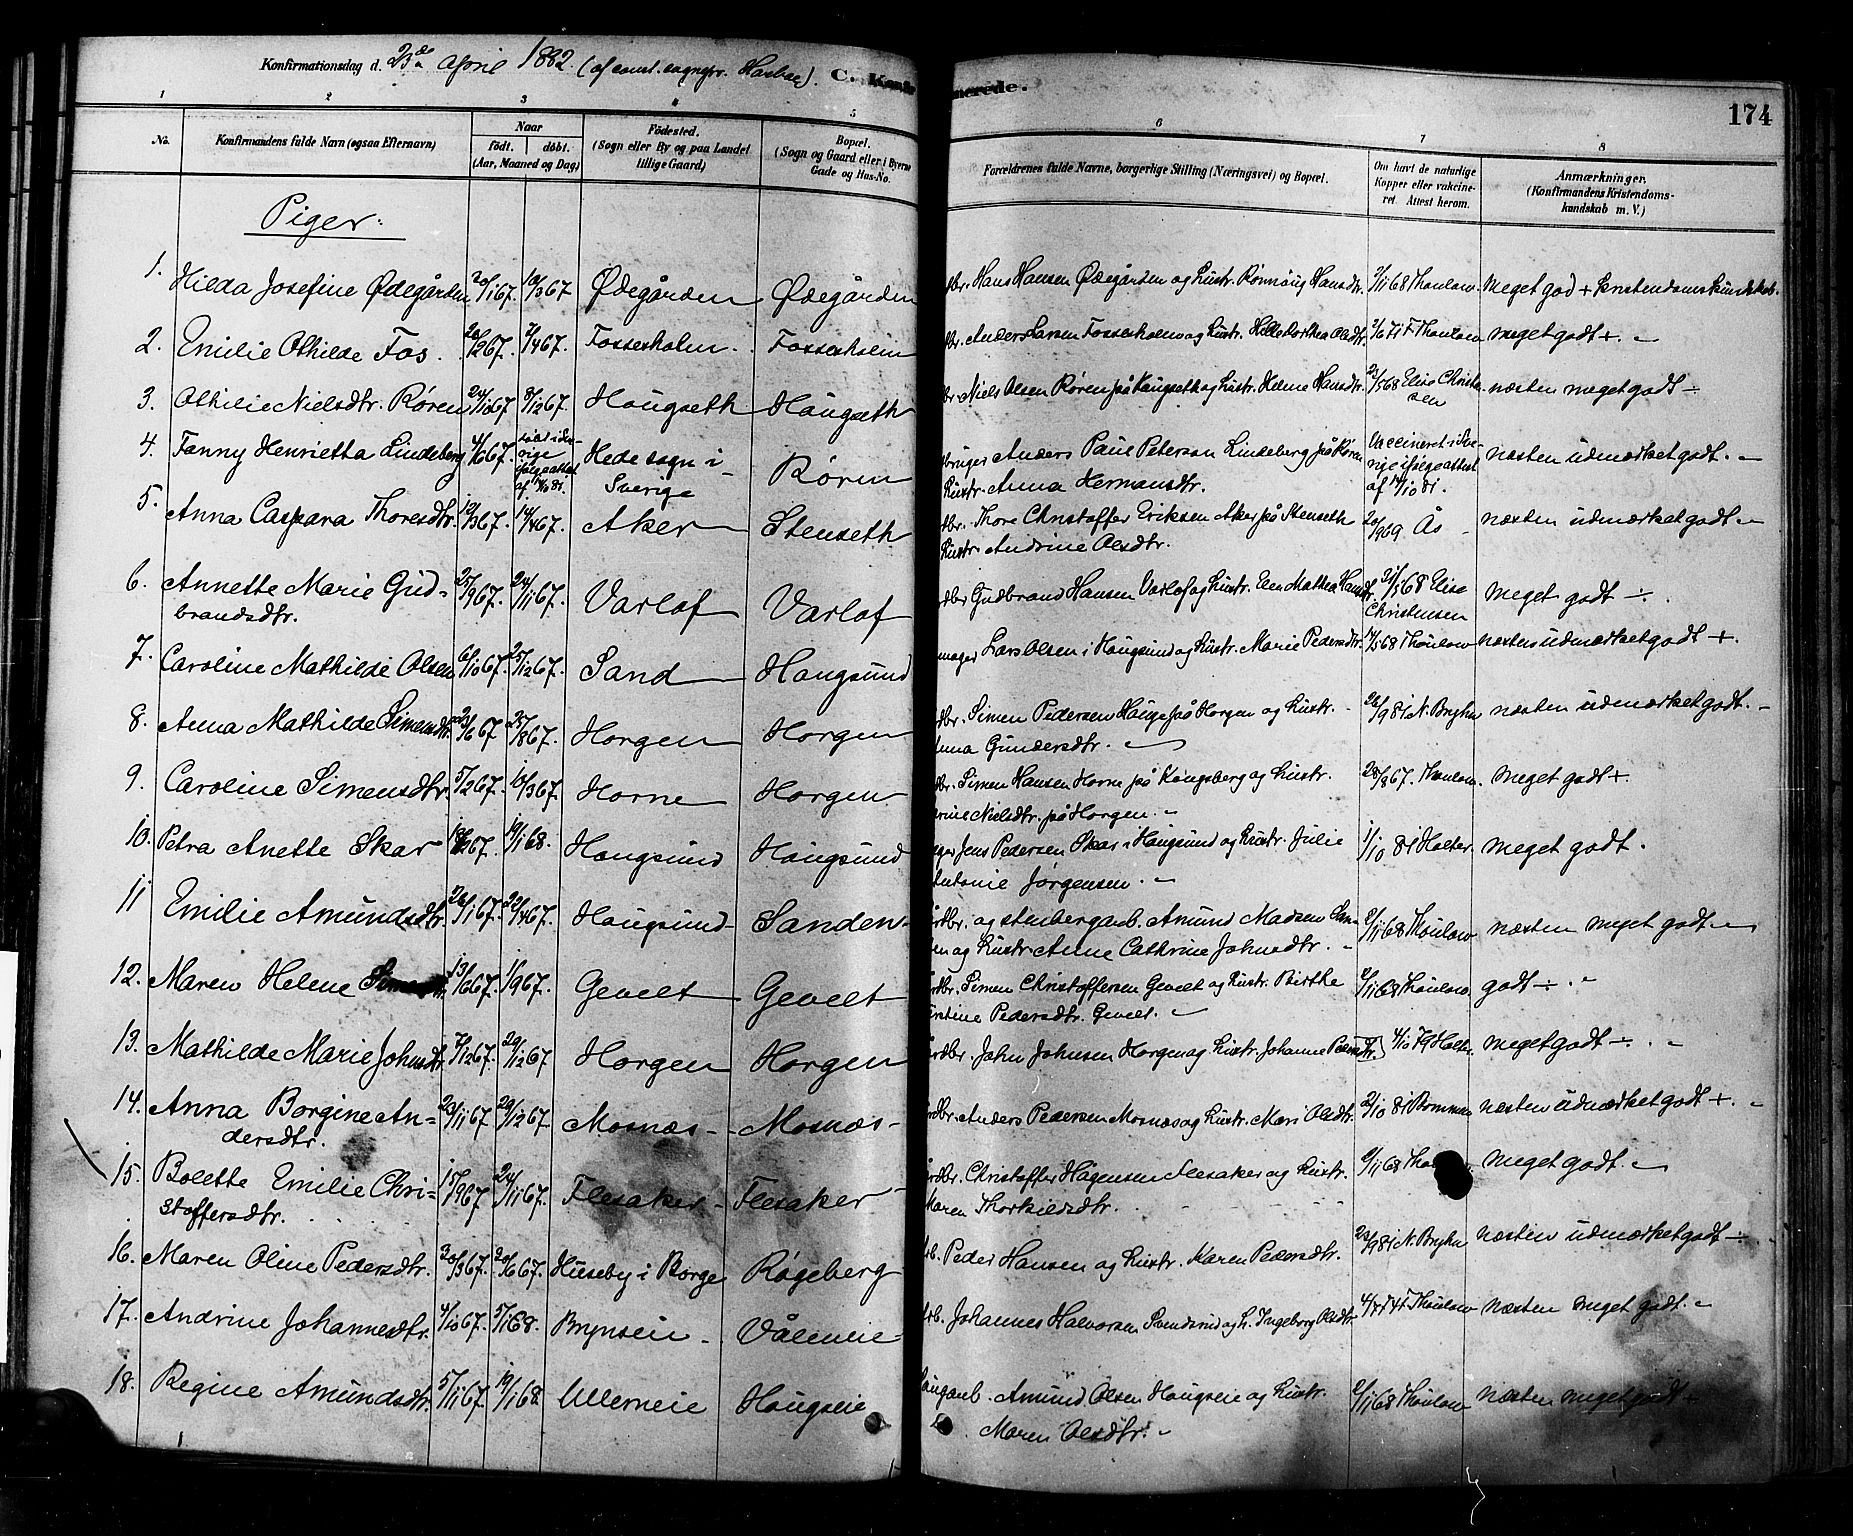 Konfirmationsdag d. 23de April 1882 (af const. sognepr. C. Konfir
merede.
174
1 2 3 4 5 6 7 8
No. Konfirmandens fulde Navn (ogsaa Efternavn) Naar født. døbt. (Aar, Maaned og Dag) Fødested. (Sogn eller By og paa Landet tillige Gaard) Bopæl. (Sogn og Gaard eller i Byerne Gade og Hus-No. Forældrenes fulde Navne, borgerlige Stilling (Næringsvei) og Bopæl. Om havt de naturlige Kopper eller vakcineret. Attest herom. Anmærkninger. (Konfirmandens Kristendomskundskab m. V.)
Piger:
1. Hilda Josefine Ødegården 20/1 67. 10/3 67 Ødegården Ødegården dbr. Hans Hansen Ødegården og Hustr. Rønnaug Hansdtr. 2/11 68 Thaulow. Meget god + Kristendomskundskab.
2. Emilie Othilde Fos. 20/2 67. 7/4 67. Fosserholm. Fosserholm dbr. Anders Larsen Fosserholm og Hustr. Helle Dorthea Olsdtr. Thaulow meget godt +. -
3. Othilie Nielsdtr. Røren 24/10 67 8/12 67. Haugseth Haugseth br. Niels Olsen Røren på Haugseth og Hustr. Helene Hansdtr. 21/5 68 Elise Christensen næsten meget godt ÷
4. Fanny Henrietta Lindeberg 4/6 67. døbt i Sverige ifølge attest af Hede sogn i Sverige Røren bruger Anders Paul Peterson Lindeberg på Røren
Hustr. Anna Hermansdtr. Vaccineret i Sverige ifølge attest af 14/10 81. næsten udmærket godt. -
5. Anna Caspara Thoresdtr. 12/3 67. 14/4 67. Aker Stenseth dbr. Thore Christoffer Eriksen Aker på Stenseth
Hustr. Andrine Olsdtr. 20/9 69 Ås - næsten udmærket godt -
6. Annette Marie Gudbrandsdtr. 25/9 67. 24/11 67. Varlof Varlof dbr Gudbrand Hansen Varlof og Hustr. Elen Mathea Hansdtr. 21/5 68 Elise Christensen Meget godt ÷.
7. Caroline Mathilde Olsen 6/10 67 25/12 67. Sand Haugsund mager Lars Olsen i Haugsund og Hustr. Marie Pedersdtr. 14/5 68 Thaulow næsten udmærket godt +.
8. Anna Mathilde Simensdtr. 23/6 67 25/8 67. Horgen Horgen dbr. Simen Pedersen Hauge på Horgen og Hustr. -
Anna Gundersdtr. - 26/9 81 N. Bryhn næsten udmærket godt. -
9. Caroline Simensdtr. 5/2 67. 10/3 67. Horne Horgen dbr. Simen Hansen Horne på Kongsberg og Hustr.
rine Nielsdtr. på Horgen. - 28/8 67. Thaulow. meget godt +.
10. Petra Anette Skar 67. 19/1 68. Haugsund Haugsund ager Jens Pedersen Skar i Haugsund og Hustr. Julie
Antonie Jørgensen. - 1/10 81 Holter. meget godt.
11 Emilie Amundsdtr. 26/1 67. 22/4 67. Haugsund - Sanden - rdbr. og stenbergarb. Amund Madsen San-
en og Hustr Anne Cathrine Johnsdtr. - 2/11 68 Thaulow næsten meget godt. -
12. Maren Helene 13/6 67. 1/9 67. Gevelt Gevelt rdbr. Simen Christoffersen Gevelt og Hustr. Birthe
ristine Pedersdtr. Gevelt. - 2/11 68 Thaulow. godt ÷. -
13. Mathilde Marie Johnsdtr 7/12 67. 29/12 67 Horgen Horgen rdbr. John Johnsen Horgen og Hustr. Johanne Pedersdtr.) 4/10 79 Holter. meget godt ÷. -
14. Anna Borgine Andersdtr. 23/11 67 29/12 67 Mosnæs - Mosnæs - rdbr. Anders Pedersen Mosnæs og Hustr. Mari Olsdtr. 2/10 81 næsten udmærket godt +. -
15. Bolette Emilie Christoffersdtr. 15/9 67 24/11 67. Flesaker - Flesaker rdbr. Christoffer Hågensen Flesaker og Hustr.
Maren Thorkildsdtr. 2/11 68 meget godt. -
16. Maren Oline Pedersdtr. 30/3 67. 20/6 67. Huseby i Borge Røgeberg rb. Peder Hansen og Hustr. Karen Pedersdtr. 23/9 81 N. Bryhn næsten udmærket godt ÷
17. Andrine Johannesdtr. 4/10 67. 5/1 68. Brynseie - Våleneie rb. Johannes Halvorsen Svendsrud og H. Ingeborg Olsdtr. Thaulow næsten meget godt. -
18. Regine Amundsdtr. 5/11 67. 19/1 68 Ullerneie Haugseie augarb. Amund Olsen Haugseie og Hustr.
Maren Olsdtr. - 2/11 68 Thaulow næsten meget godt +